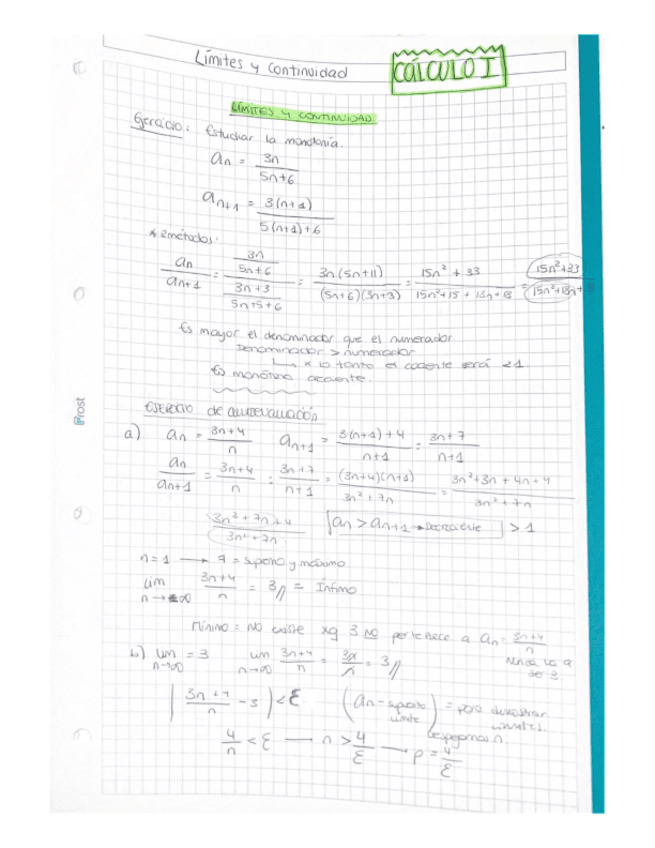 Límites y Continuidad
CÁLCULO I
LÍMITES Y CONTINUIDAD
Ejercicio: Estudiar la monotonía.
an = 3n / 5n+6
an+1 = 3(n+1) / 5(n+1)+6
* 2 métodos:
an / an+1 = (3n / 5n+6) / (3n+3 / 5n+5+6) = 3n(5n+11) / (5n+6)(3n+3) = 15n² + 33 / 15n²+15 + 18n+18 = 15n²+33 / 15n²+18n+
Es mayor el denominador que el numerador
Denominador > numerador
x lo tanto el cociente será <1
Es monótona creciente.
EJERCICIO de autoevaluación
a) an = 3n+4 / n an+1 = 3(n+1)+4 / n+1 = 3n+7 / n+1
an / an+1 = 3n+4 / n : 3n+7 / n+1 = (3n+4)(n+1) / 3n²+7n = 3n²+3n+4n+4 / 3n²+7n
3n²+7n+4 / 3n²+7n an > an+1 → Decreciente > 1
n=1 → 7 = supremo y máximo
lim n→∞ 3n+4 / n = 3 // = Ínfimo
Mínimo = No existe xq 3 NO pertenece a an = 3n+4 / n
nunca va a
ser 3
b) lim n→∞ = 3 lim n→∞ 3n+4 / n = 3n / n = 3 //
| 3n+4 / n - 3 | < ε (an - supuesto límite) = para demostrar
límites.
despejamos n.
4 / n < ε — n > 4 / ε → p = 4 / ε
Prost